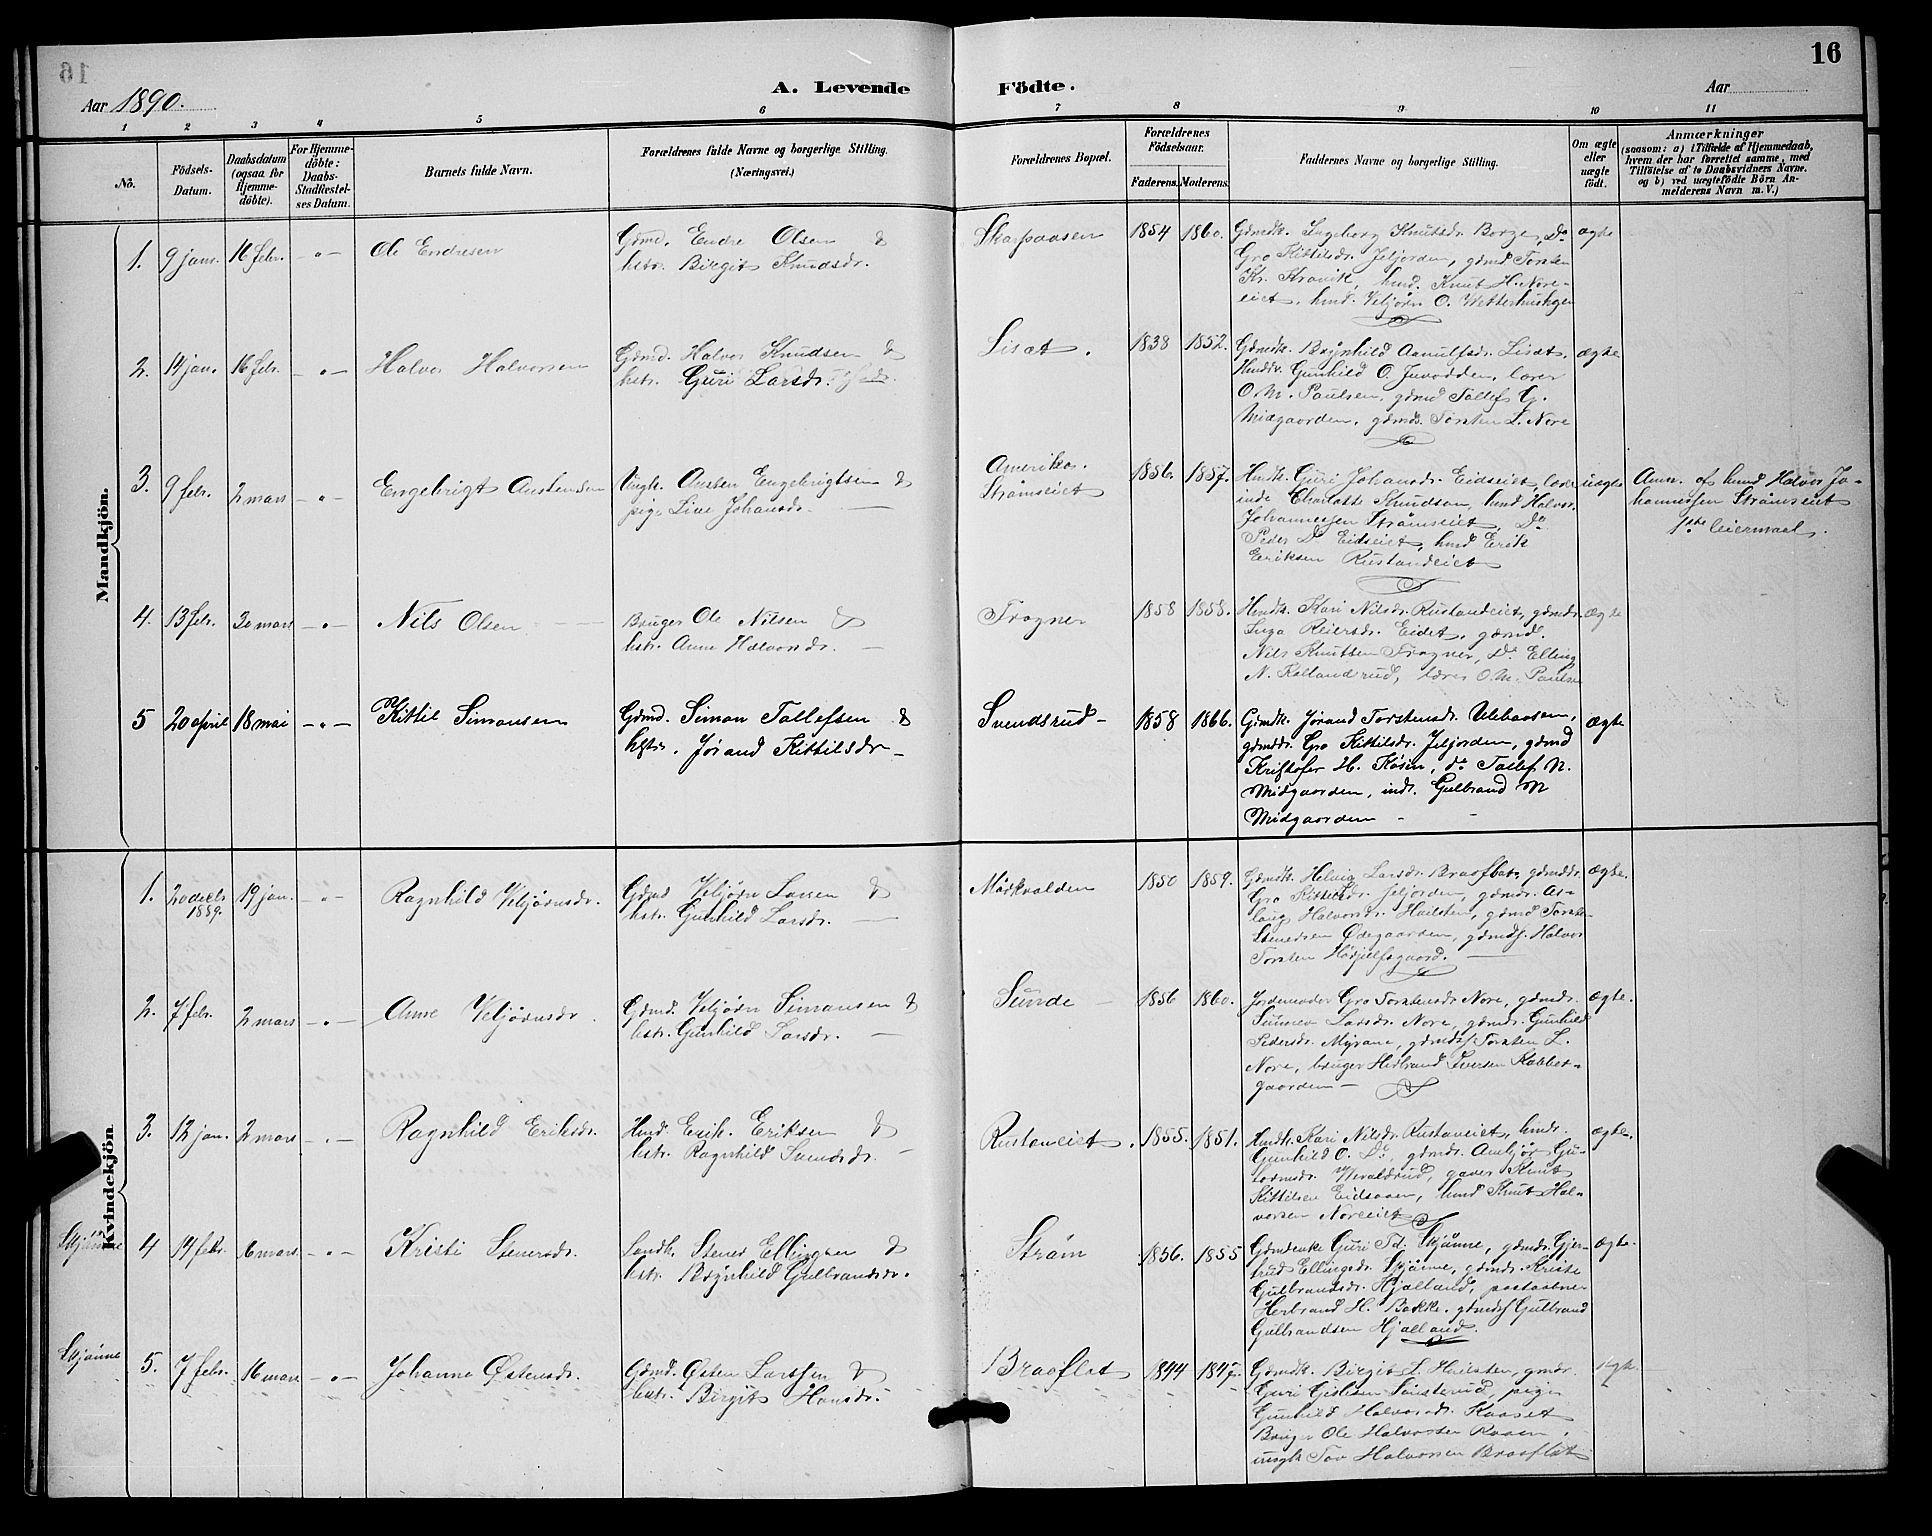 16
Aar 1890.
A. Levende Födte.
Aar
1 2 3 4 5 6 7 8 9 10 11
No.
Födsels-
Datum.
Daabsdatum
(ogsaa for
Hjemme-
döbte).
For Hjemme-
döbte:
Daabs-
Stadfæstel-
ses Datum.
Barnets fulde Navn.
Forældrenes fulde Navne og borgerlige Stilling.
(Næringsvei.)
Forældrenes Bopæl.
Forældrenes
Födselsaar.
Faderens.
Moderens.
Faddernes Navne og borgerlige Stilling.
Om ægte
eller
uægte
födt.
Anmærkninger
(saasom: a) i Tilfælde af Hjemmedaab,
hvem der har forrettet samme, med
Tilföielse af to Daabsvidners Navne,
og b) ved uægtefödte Börn An-
melderens Navn m. V.)
Mandkjön.
1. 9 janr. 16 febr. -"- Ole Endresen
Gdmd. Endre Olsen &
hstr. Birgit Knudsdr.
Skarpaasen 1854 1860.
Gdmdk. Ingeborg Knutsdr. Borge, Do
Gro Kittilsdr. Jeljorden, gdmd Torsten
Kr. Kravik, hmd. Knut H. Nore-
eiet, hmd. Veljørn O.
ægte
2. 14 jan. 16 febr. -"- Halvor Halvorsen
Gdmd. Halvor Knudsen &
hstr. Guri Larsdr.
Lisæt. 1838 1852.
Gdmdk. Brynhild Aanulfsdr. Lisæt,
Gunhild O. Juvodden, lærer
O. M. Paulsen, gdmd Tollef G.
Midgaarden, gdmds. Torsten L. Nore
ægte
3. 9 febr. 2 mars -"- Engebrigt Austensen
Ungk. Austen Engebrigtsen &
pige Live Johansdr.
Amerika.
Strømseiet 1856. 1857.
Hmdk. Guri Johansdr. Eidseiet, lærer
inde Charlotte Knudsen, hmd Halvor
Johannessen Strømseiet, Do
Peder D. Eidseiet, hmd Erik
Eriksen Rustandeiet
uægte
Anm. af hmd Halvor Jo-
hannessen Strømseiet
1ste leiermaal.
4. 13 febr. 30 mars -"- Nils Olsen
Bruger Ole Nilsen &
hstr. Anne Halvorsdr.
Trogner 1858 1858.
Hmdk. Kari Nilsdr. Rustandeiet, gdmdr.
Inga Reiersdr. Eidet, gdmd.
Nils Knutsen Trogner, Do Elling
N. Kallandrud, lærer O. M. Paulsen
ægte
5 20 april 18 mai -"- Kittil Simonsen
Gdmd. Simon Tollefsen &
hstr. Jørand Kittilsdr.
Svendsrud 1858 1866.
Gdmdk. Jørand Torstensdr. Ulebaasen,
gdmdr. Gro Kittilsdr. Jeljorden, gdmd
Kristofer H. Kåsin, do Tollef N.
Midgaarden, inds. Gulbrand N
Midgaarden
ægte
Kvindekjön.
1. 20 decbr
1889. 19 jan. -"- Ragnhild Veljørnsdr.
Gdmd Veljørn Larsen &
hstr. Gunhild Larsdr.
Mørkvolden 1850 1859.
Gdmdk. Helvig Larsdr. Braaflat, gdmddr.
Gro Kittilsdr. Jeljorden, gdmdr. As-
laug Halvorsdr. Huilsten, gdmd Torsten
Stenersen Ødegaarden, gdmds. Halvor
Torsten
ægte.
2. 7 febr. 2 mars -"- Anne Veljørnsdr.
Gdmd. Veljørn Simonsen &
hstr. Gunhild Larsdr.
Sunde 1856 1860.
Jordemoder Gro Torstensdr. Nore, gdmdr.
Sunnev Larsdr. Nore, gdmdr. Gunhild
Pedersdr. Myrane, gdmds. Torsten L.
Nore, bruger Herbrand Iversen Kobber-
gaarden
ægte.
3. 12 jan. 2 mars -"- Ragnhild Eriksdr.
Hmd. Erik Eriksen &
hstr. Ragnhild Svendsdr.
Rustaneiet. 1855. 1851.
Hmdk. Kari Nilsdr. Rustaneiet, hmdr.
Gunhild O. Do, gdmdr. Ambjør Gu-
tormsdr. gaver Knut
Kittilsen Eidsaaen, hmd Knut Hal-
vorsen Noreeiet
ægte.
Skjønne 4 14 febr. 6 mars -"- Kristi Stenersdr.
Landh. Stener Ellingsen &
hstr. Brynhild Gulbrandsdr.
Strøm 1856. 1855
Gdmdenke Guri Td. Skjønne, gdmdr. Gjer-
trud Ellingsdr. Skjønne, gdmdr. Kristi
Gulbrandsdr. Hjalland, postaabner
Herbrand H. Bakke, gdmds Gulbrand
Gulbrandsen Hjalland.
ægte.
Skjønne 5. 7 febr. 16 mars -"- Johanne Østensdr.
Gdmd. Østen Larssen &
hstr. Birgit Hansdr.
Braaflat 1844 1847.
Gdmdk. Birgit L. Huilsten, gmdr.
Guri pige
Gunhild Halvorsdr. Kaaset
Bruger Ole Halvorsen Raaen,
ungk Tov Halvorsen Braaflat
ægte.